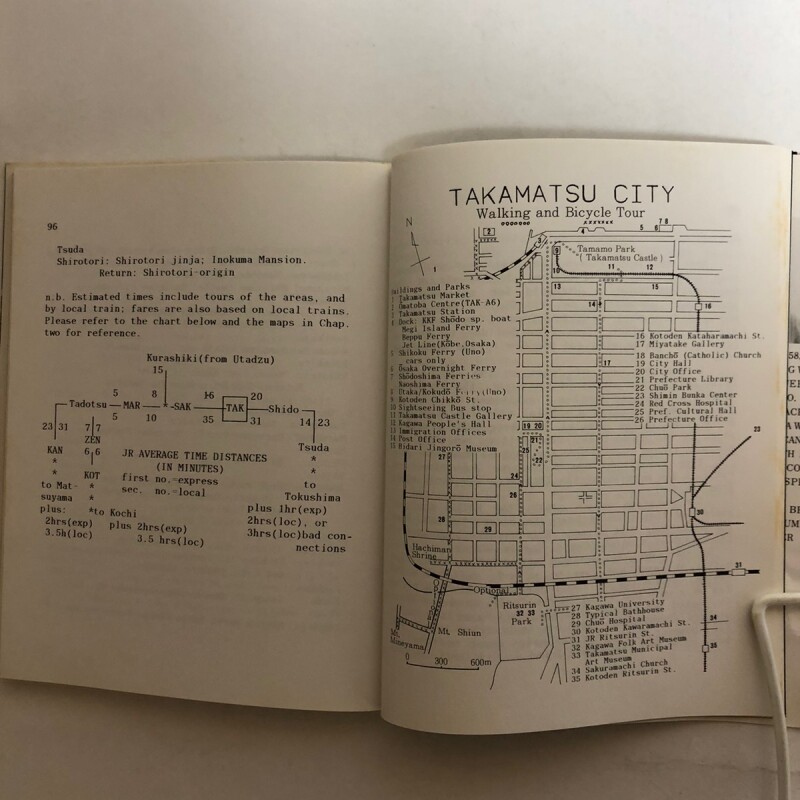 96
Tsuda
Shirotori: Shirotori jinja; Inokuma Mansion.
Return: Shirotori-origin
n.b. Estimated times include tours of the areas, and
by local train; fares are also based on local trains.
Please refer to the chart below and the maps in Chap.
two for reference.
Kurashiki(from Utadzu)
15
5 8 16 20
Tadotsu MAR SAK TAK Shido
5 10 35 31 14 23
23 31 7 7
ZEN
Tsuda
KAN 6 6
* KOT
* *
to Mat- *
suyama *
*to Kochi
JR AVERAGE TIME DISTANCES
(IN MINUTES)
first no.=express
sec. no.=local
*
*
to
Tokushima
plus:
2hrs(exp)
3.5h(loc)
plus 2hrs(exp)
3.5 hrs(loc)
plus 1hr(exp)
2hrs(loc), or
3hrs(loc)bad con-
nections
TAKAMATSU CITY
Walking and Bicycle Tour
N
Tamamo Park
(Takamatsu Castle)
Buildings and Parks
1 Takamatsu Market
2 Omatoba Centre(TAK-A6)
3 Takamatsu Station
4 Dock: KKF Shōdo sp. boat
Megi Island Ferry
Beppu Ferry
Jet Line(Kōbe,Osaka)
5 Shikoku Ferry (Uno)
cars only
6 Ōsaka Overnight Ferry
7 Shōdoshima Ferries
Naoshima Ferry
8 Utaka/Kokudō Ferry(Uno)
9 Kotoden Chikkō St.
10 Sightseeing Bus stop
11 Takamatsu Castle Gallery
12 Kagawa People's Hall
13 Immigration Offices
14 Post Office
15 Hidari Jingorō Museum
16 Kotoden Kataharamachi St.
17 Miyatake Gallery
18 Banchō (Catholic) Church
19 City Hall
20 City Office
21 Prefecture Library
22 Chuō Park
23 Shimin Bunka Center
24 Red Cross Hospital
25 Pref. Cultural Hall
26 Prefecture Office
Hachiman
Shrine
Optional
Ritsurin
32 33
Park
Mt.
Mineyama
Mt. Shiun
0 300 600m
27 Kagawa University
28 Typical Bathhouse
29 Chuō Hospital
30 Kotoden Kawaramachi St.
31 JR Ritsurin St.
32 Kagawa Folk Art Museum
33 Takamatsu Municipal
Art Museum
34 Sakuramachi Church
35 Kotoden Ritsurin St.